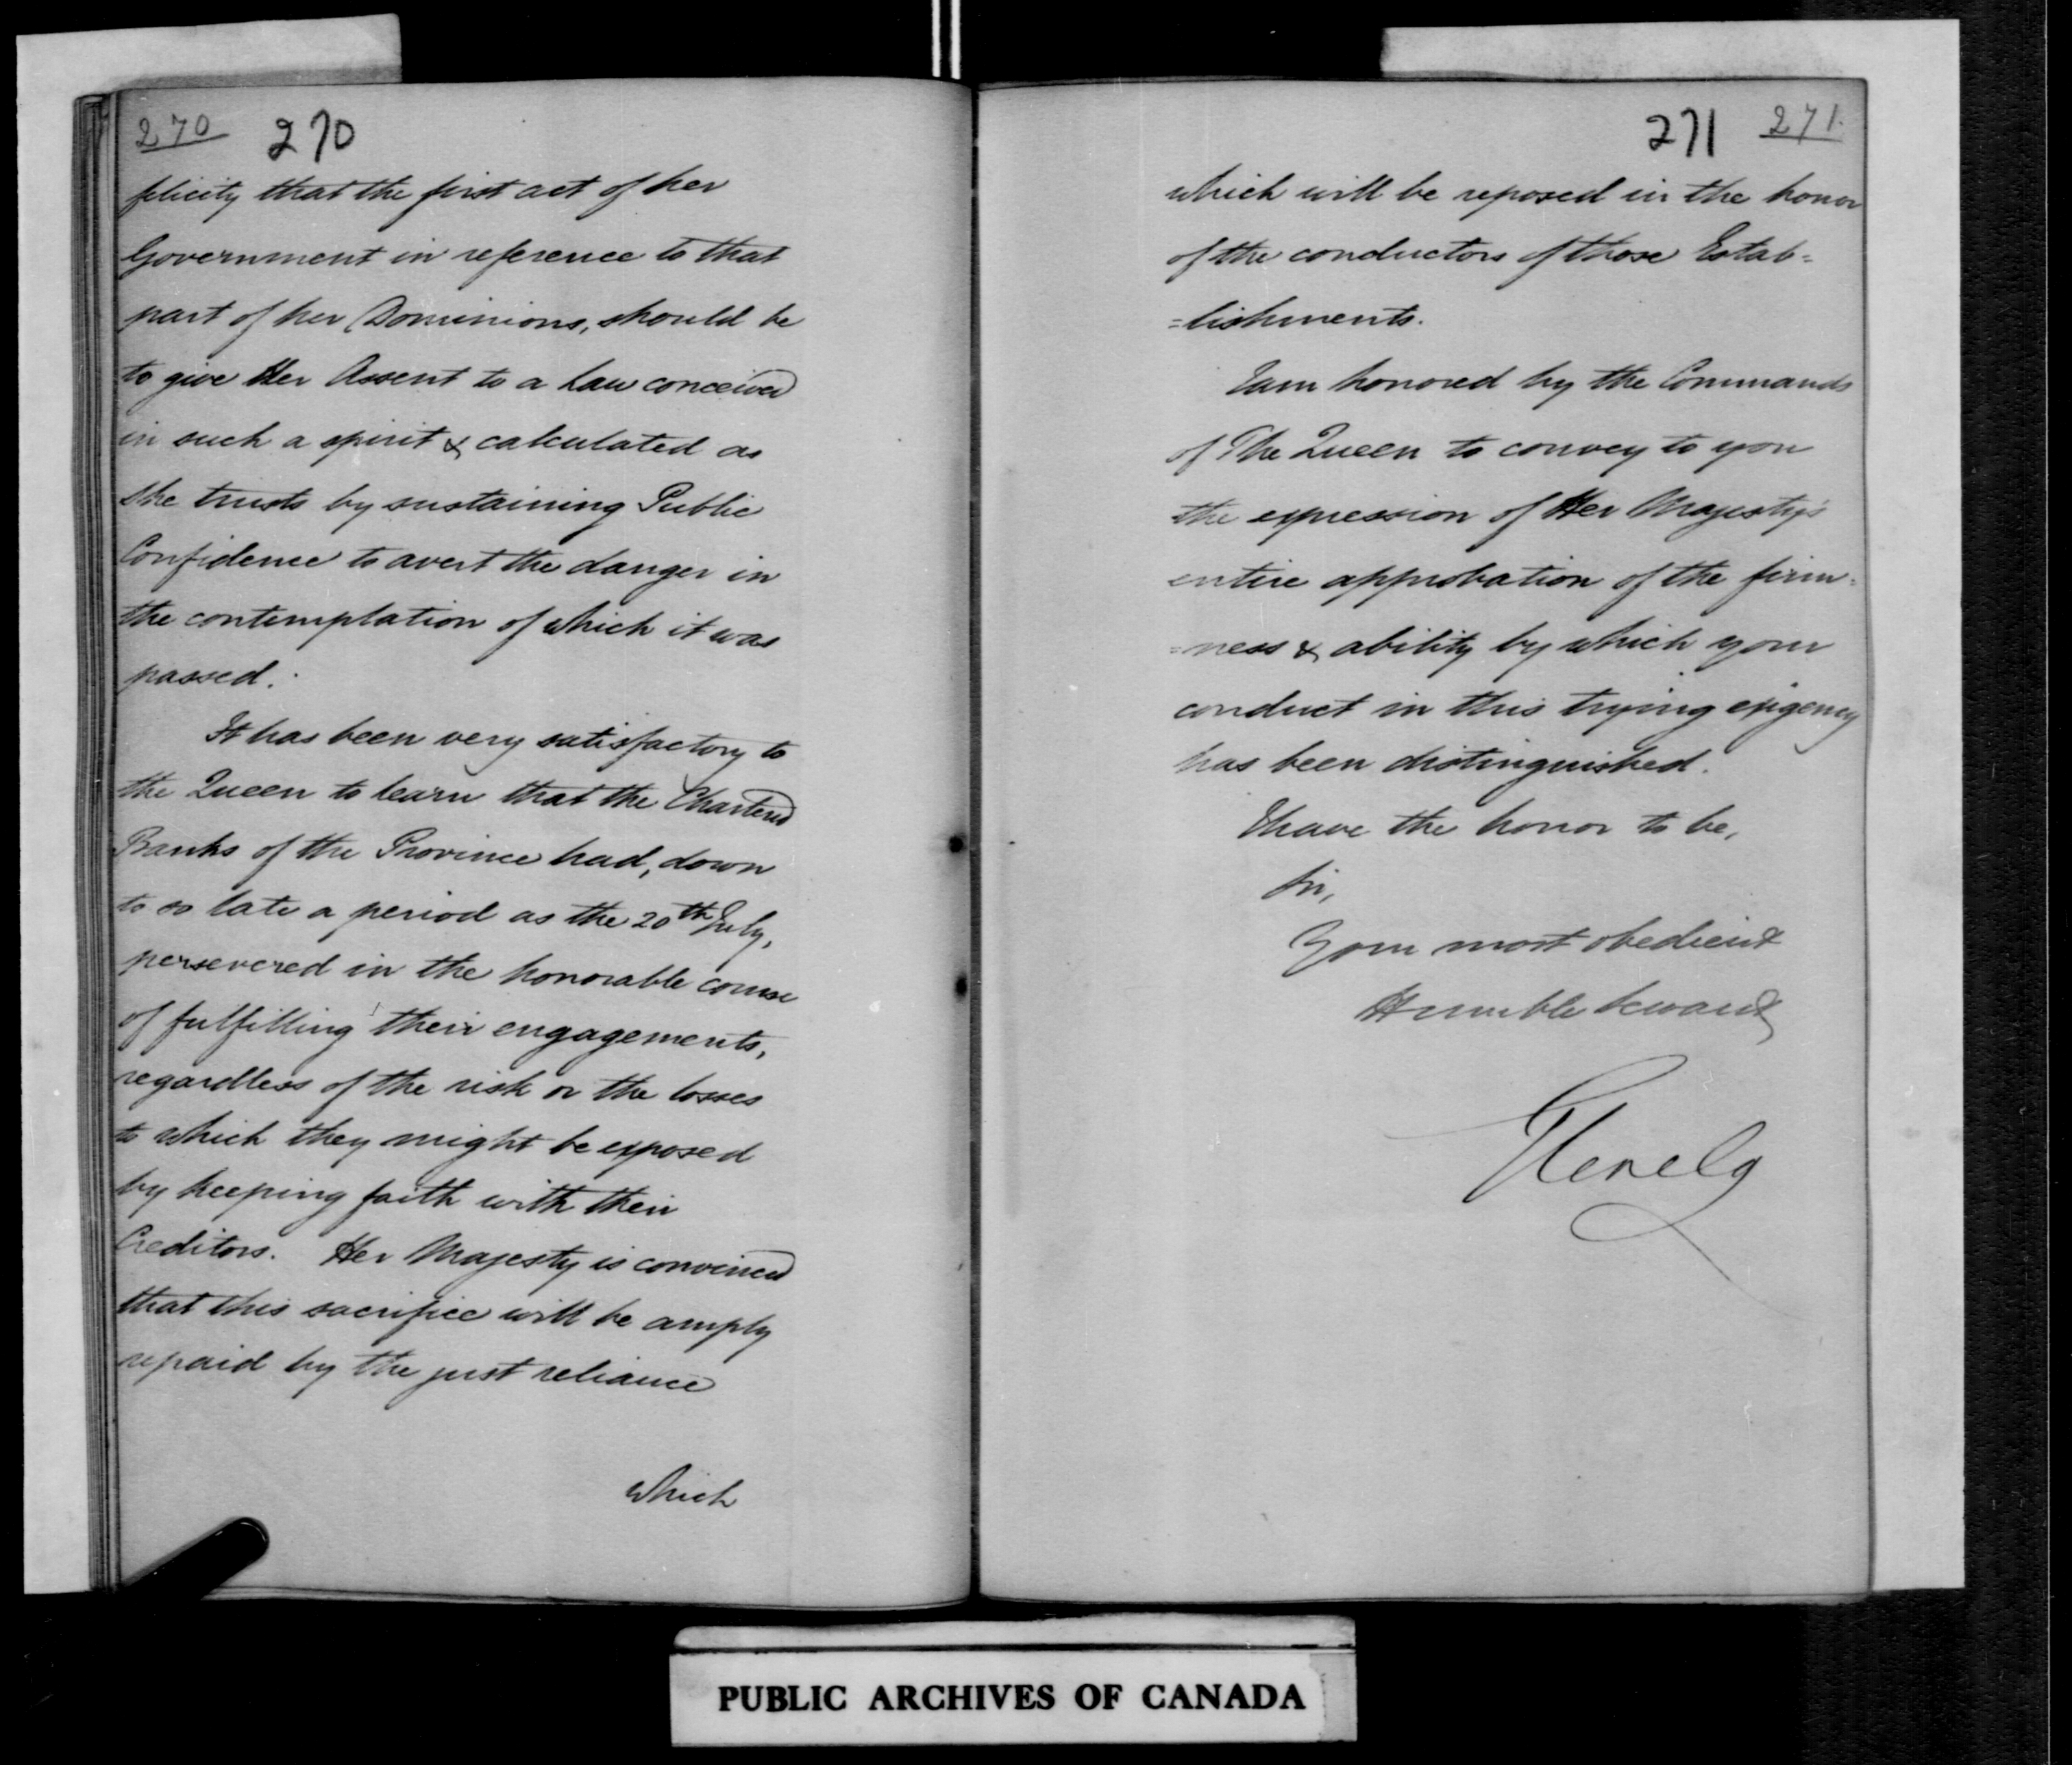 270 270
felicity that the first act of her
Government in reference to that
part of her Dominions, should be
to give Her Assent to a Law conceived
in such a spirit & calculated as
She trusts by sustaining Public
Confidence to avert the danger in
the contemplation of which it was
passed.
It has been very satisfactory to
the Queen to learn that the Chartered
Banks of the Province had, down
to so late a period as the 20th July,
persevered in the honorable course
of fulfilling their engagements,
regardless of the risk or the losses
to which they might be exposed
by keeping faith with their
Creditors. Her Majesty is convinced
that this sacrifice will be amply
repaid by the just reliance
which
271 271.
which will be reposed in the honor
of the conductors of those Estab=
=lishments.
I am honored by the Commands
of The Queen to convey to you
the expression of Her Majesty's
entire approbation of the firm=
=ness & ability by which your
conduct in this trying exigency
has been distinguished.
I have the honor to be,
Sir,
Your most obedient
Humble Servant
Glenelg
PUBLIC ARCHIVES OF CANADA